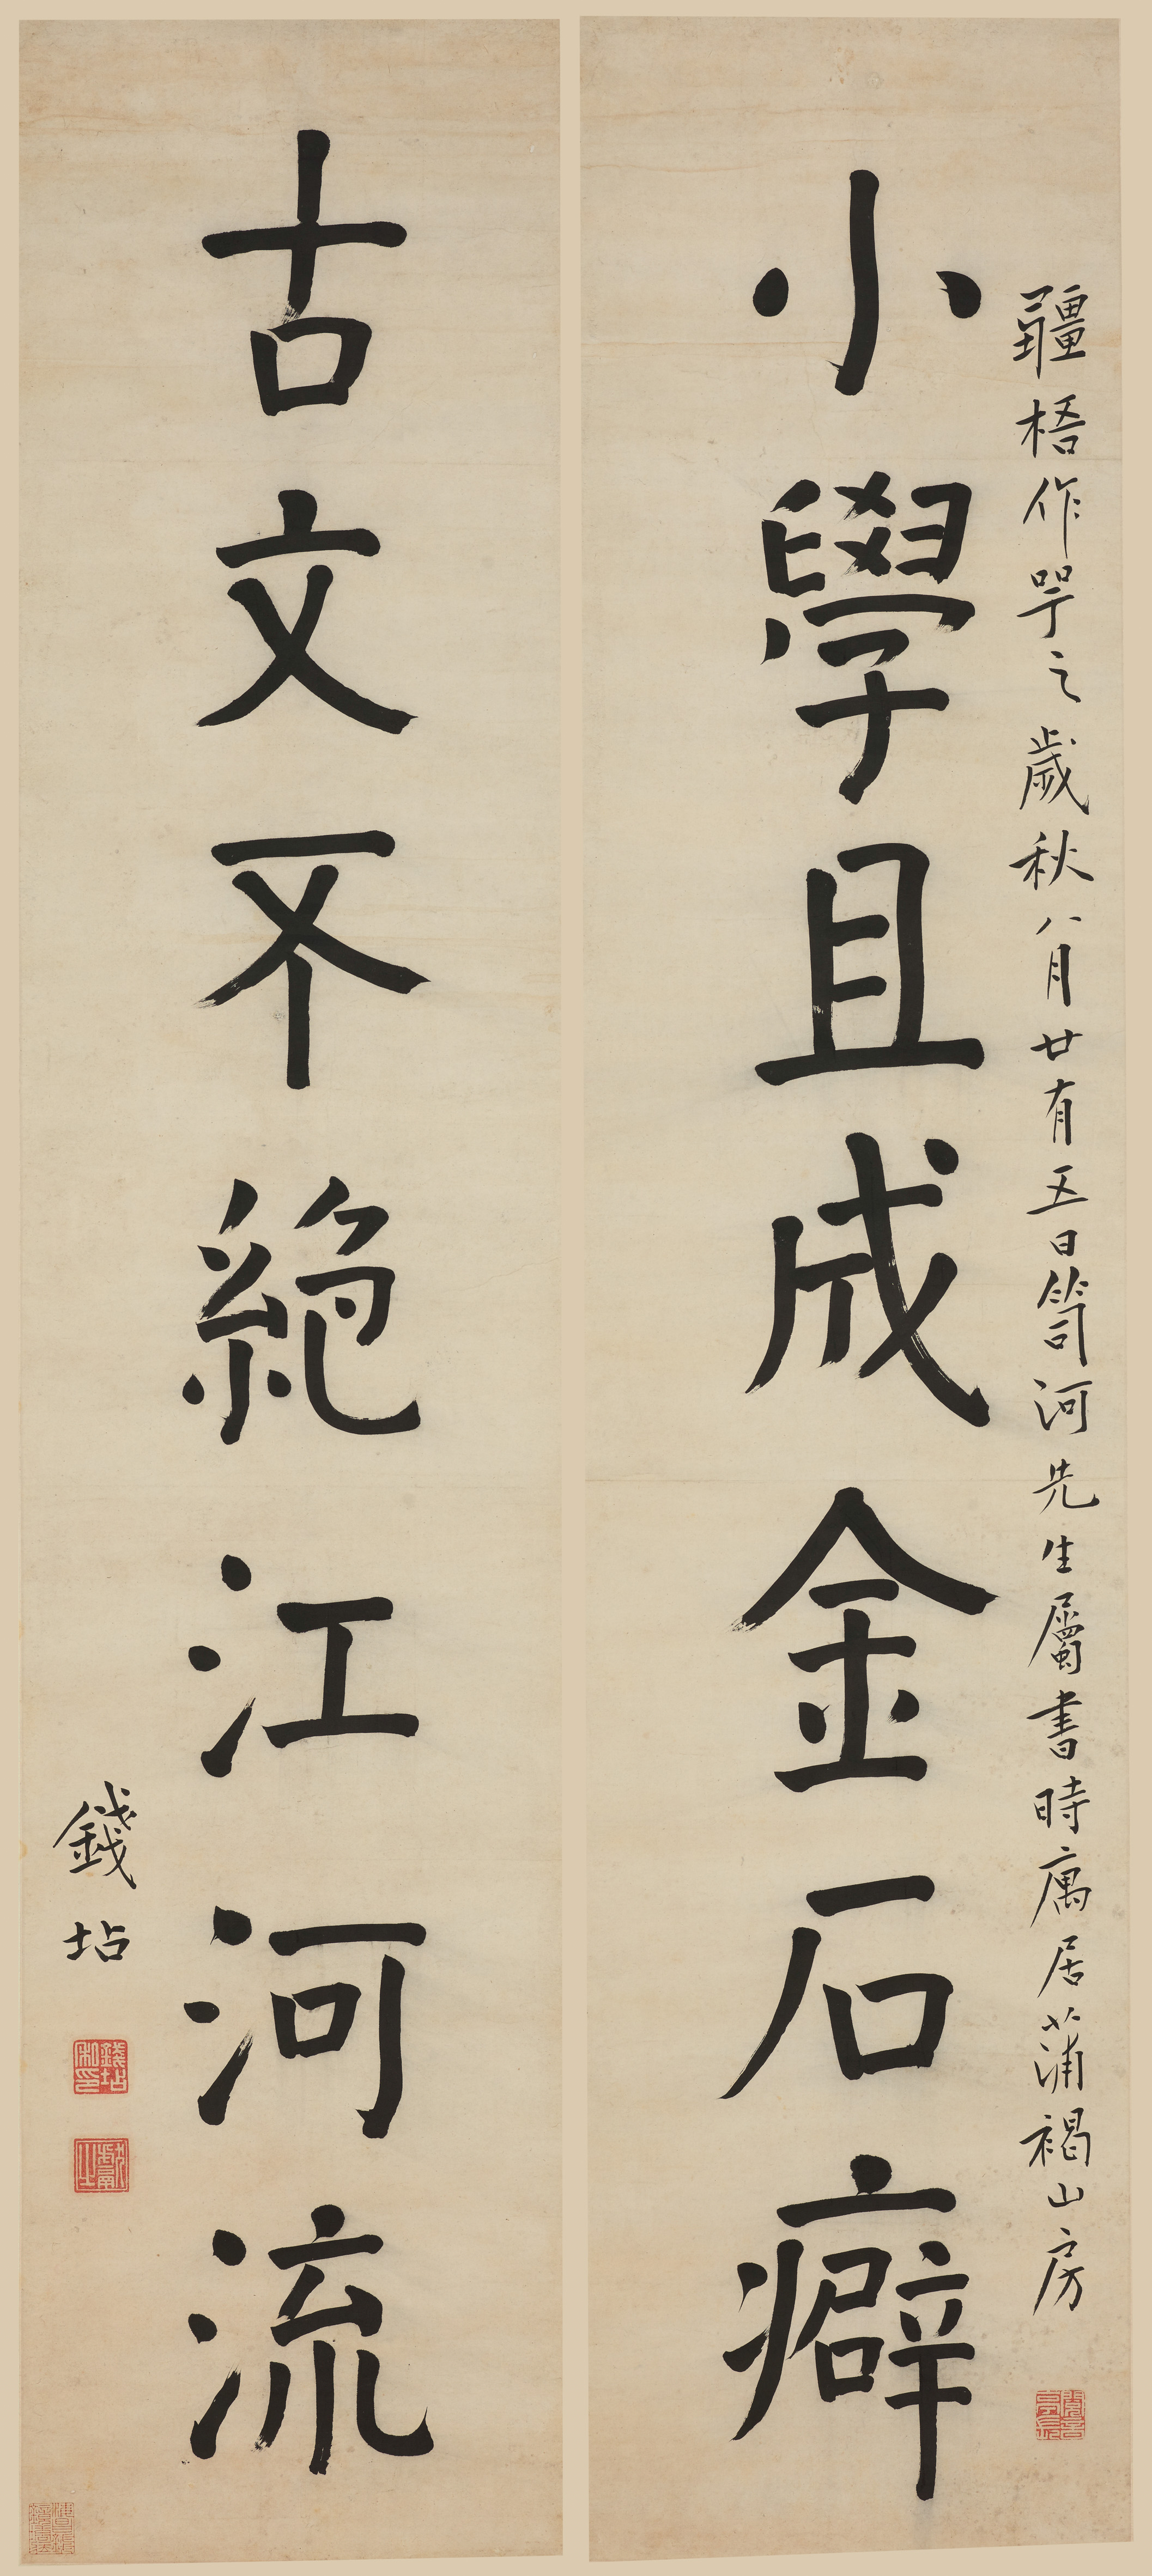 彊梧作咢之歲秋八月廿有五日笥河先生屬書時寓居蒲褐山房
小學且成金石癖
古文不絕江河流
錢坫
錢坫私印
獻之